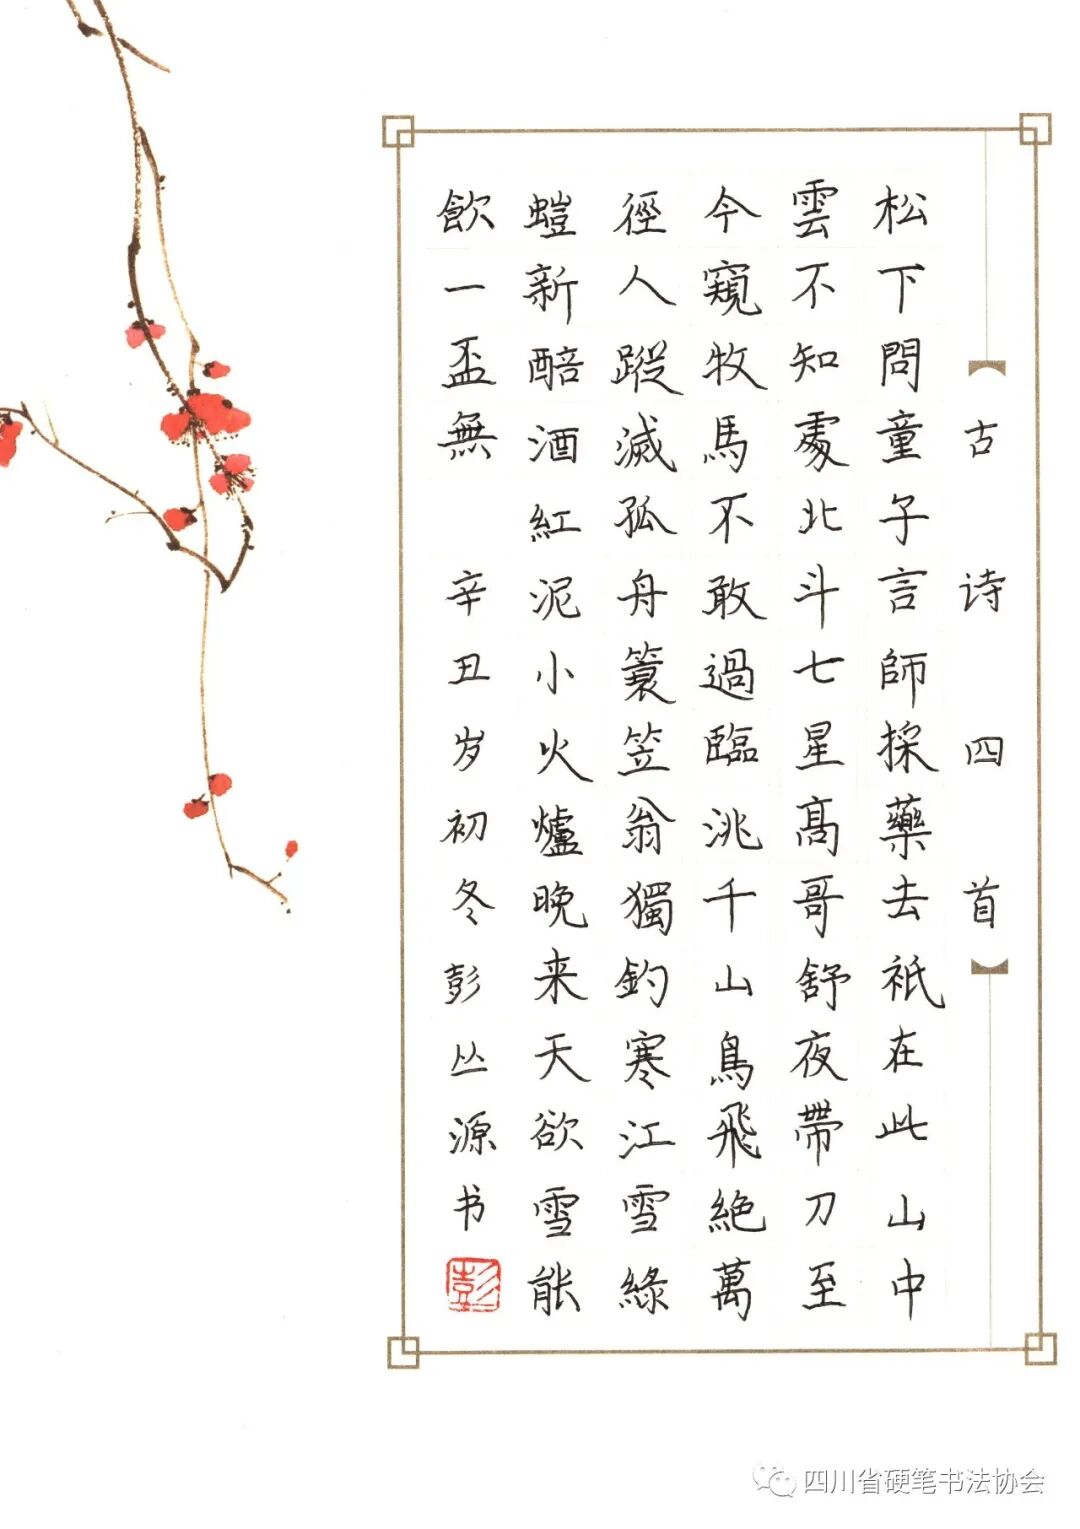 古诗四首
松下問童子言師採藥去祇在此山中
雲不知處北斗七星高哥舒夜帶刀至
今窺牧馬不敢過臨洮千山鳥飛絶萬
徑人蹤滅孤舟簑笠翁獨釣寒江雪綠
螘新醅酒紅泥小火爐晚来天欲雪能
飲一盃無 辛丑岁初冬彭丛源书
彭
四川省硬笔书法协会